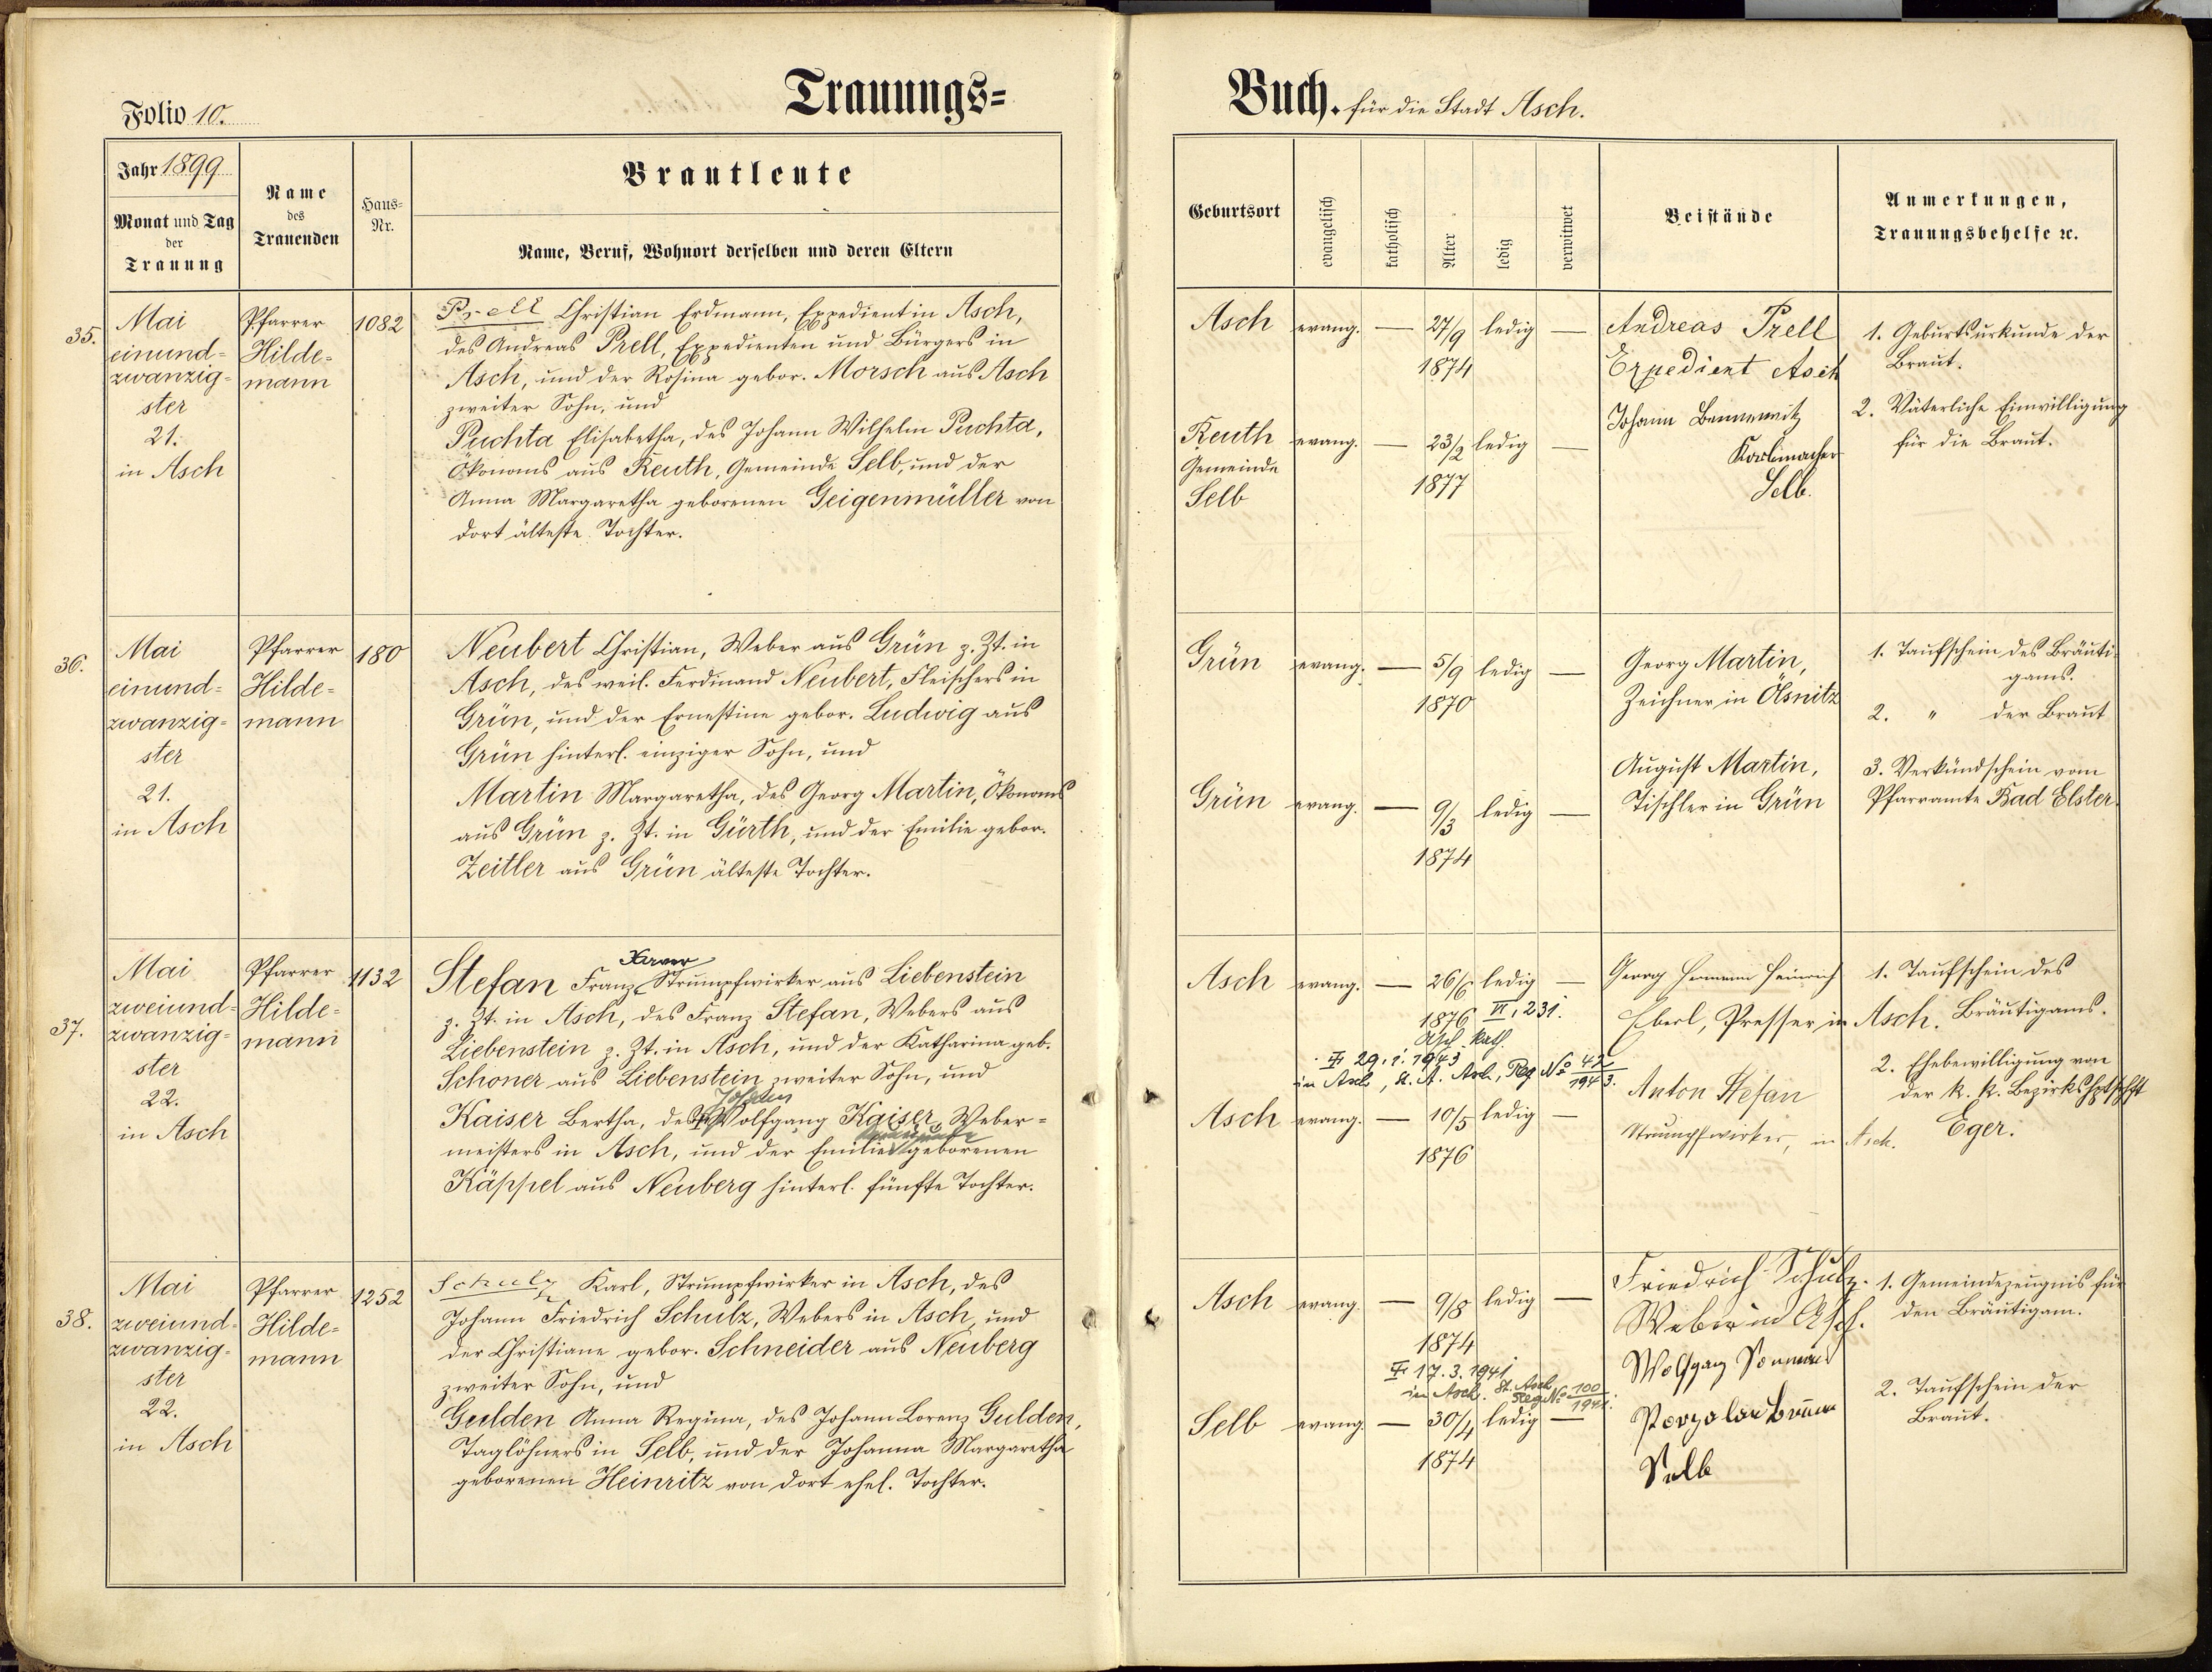 Folio 10.
Trauungs=
Jahr 1899
Monat und Tag
der
Trauung
Name
des
Trauenden
Haus=
Nr.
Brautleute
Name, Beruf, Wohnort derselben und deren Eltern
35.
Mai
einund=
zwanzig=
ster
21.
in Asch
Pfarrer
Hilde=
mann
1082
Prell Christian Erdmann, Expedient in Asch,
des Andreas Prell, Expedienten und Bürgers in
Asch, und der Rosina gebor. Morsch aus Asch
zweiter Sohn, und
Puchta Elisabetha, des Johann Wilhelm Puchta,
Ökonoms aus Reuth, Gemeinde Selb, und der
Anna Margaretha geborenen Geigenmüller von
dort älteste Tochter.
36.
Mai
einund=
zwanzig=
ster
21.
in Asch
Pfarrer
Hilde=
mann
180
Neubert Christian, Weber aus Grün z. Zt. in
Asch, des weil. Ferdinand Neubert, Fleischers in
Grün, und der Ernestine gebor. Ludwig aus
Grün hinterl. einziger Sohn, und
Martin Margaretha, des Georg Martin, Ökonoms
aus Grün z. Zt. in Gürth, und der Emilie gebor.
Zeitler aus Grün älteste Tochter.
37.
Mai
zweiund=
zwanzig=
ster
22.
in Asch
Pfarrer
Hilde=
mann
1132
Xaver
Stefan Franz Strumpfwirker aus Liebenstein
z. Zt. in Asch, des Franz Stefan, Webers aus
Liebenstein z. Zt. in Asch, und der Katharina geb.
Schoner aus Liebenstein zweiter Sohn, und
Kaiser Bertha, des Wolfgang Kaiser, Weber=
meisters in Asch, und der Emilie geborenen
Käppel aus Neuberg hinterl. fünfte Tochter.
38.
Mai
zweiund=
zwanzig=
ster
22.
in Asch
Pfarrer
Hilde=
mann
1252
Schulz Karl, Strumpfwirker in Asch, des
Johann Friedrich Schulz, Webers in Asch, und
der Christiane gebor. Schneider aus Neuberg
zweiter Sohn, und
Gulden Anna Regina, des Johann Lorenz Gulden,
Taglöhners in Selb, und der Johanna Margaretha
geborenen Heinritz von dort ehel. Tochter.
Buch. für die Stadt Asch.
Geburtsort
evangelisch
katholisch
Alter
ledig
verwitwet
Beistände
Anmerkungen,
Trauungsbehelfe ꝛc.
Asch evang. — 27/9 ledig —
1874
Reuth evang. — 23/2 ledig —
Gemeinde
Selb
1877
Andreas Prell
Expedient Asch
Johann
Selb.
1. Geburtsurkunde der
Braut.
2. Väterliche Einwilligung
für die Braut.
Grün evang. — 5/9 ledig —
1870
Grün evang. — 9/3 ledig —
1874
Georg Martin,
Zeichner in Ölsnitz
August Martin,
Tischler in Grün
1. Taufschein des Bräuti=
gams.
2. " der Braut
3. Verkündschein vom
Pfarramte Bad Elster.
Asch evang. — 26/6 ledig —
1876 VI, 231.
Asch kath.
29. 1. 1943
in Asch, St. A. Asch, Reg. No 42/1943.
Asch evang. — 10/5 ledig —
1876
Georg Hermann Heinrich
Eberl, Presser, in Asch.
Anton Stefan
Strumpfwirker, in Asch.
1. Taufschein des
Bräutigams.
2. Ehebewilligung von
der k. k. Bezirkshptschft
Eger.
Asch evang. — 9/8 ledig —
1874
17. 3. 1941
in Asch. St. Asch
Reg. No 100/1941.
Selb evang. — 30/4 ledig —
1874
Friedrich Schulz.
Weber in Asch.
Wolfgang
Selb
1. Gemeindezeugnis für
den Bräutigam.
2. Taufschein der
Braut.